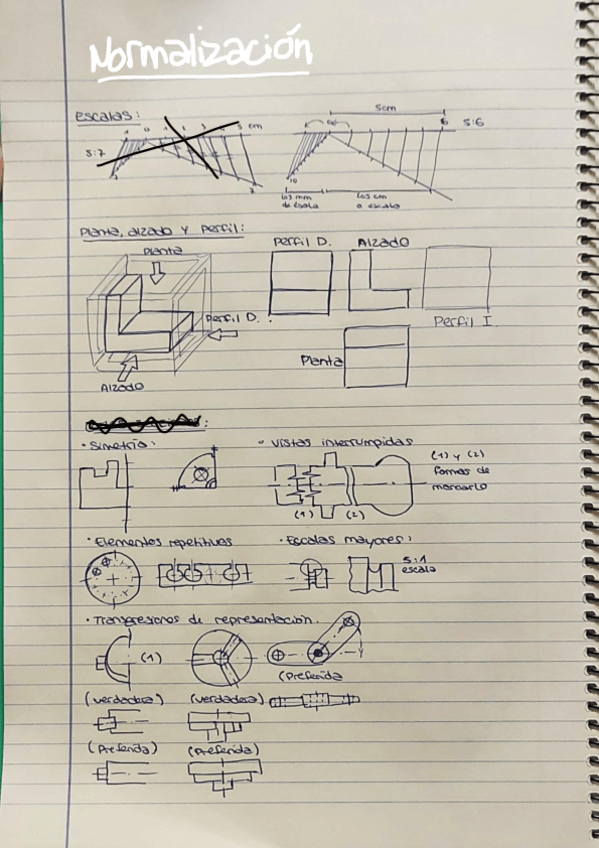 Normalización
Escalas:
1 0 1 2 3 4 5 cm
5:7
5cm
0 6 5:6
10
los mm de escala
los cm a escala
Planta, alzado y perfil:
Planta
Perfil D.
Alzado
Perfil D. Alzado
Perfil I.
Planta
· Simetría:
· Vistas interrumpidas
(1) y (2)
formas de
marcarlo
(1) (2)
· Elementos repetitivos
· Escalas mayores:
5:1
escala
· Transgresiones de representación.
(1)
(Preferida
(verdadera) (verdadera)
(Preferida) (Preferida)